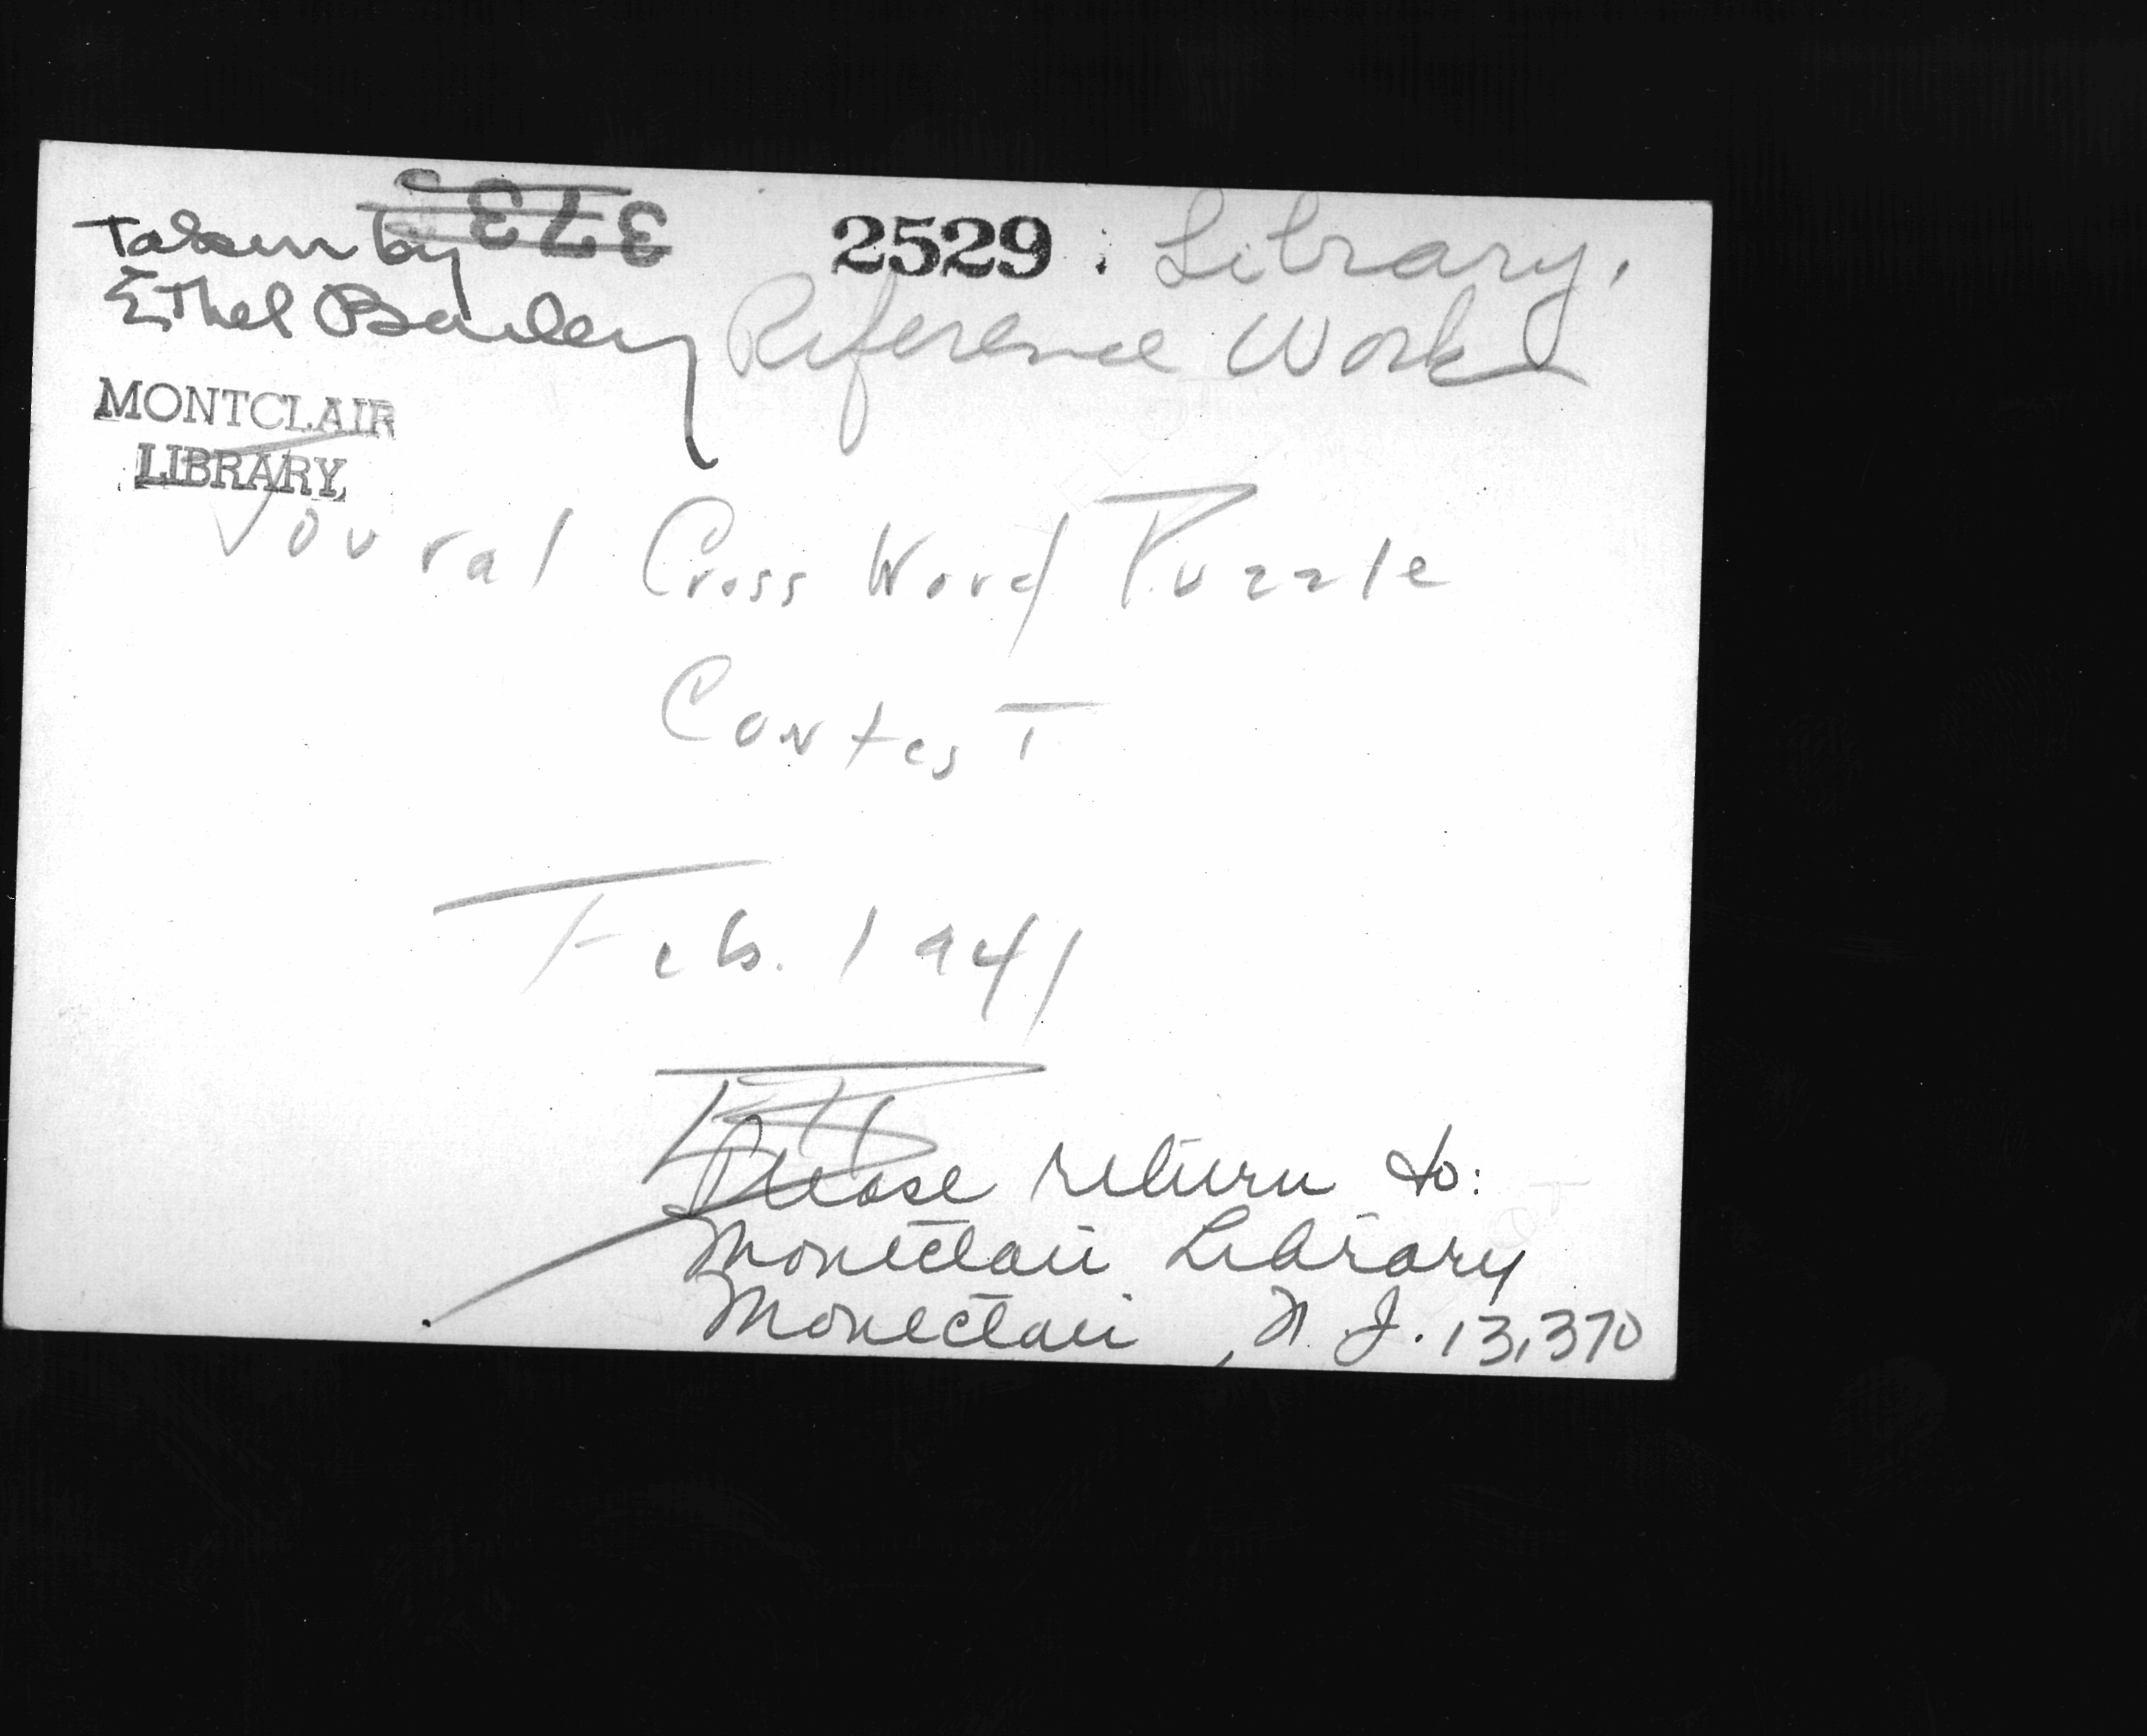 Taken by 3733 2529 Library.
Ethel Bauley Reference Work
MONTCLAIR
LIBRARY
Joural Cross Word Puzzle
Contest
Feb. 1941
Please return to:
Montclair Library
Montclair, N.J. 13,370